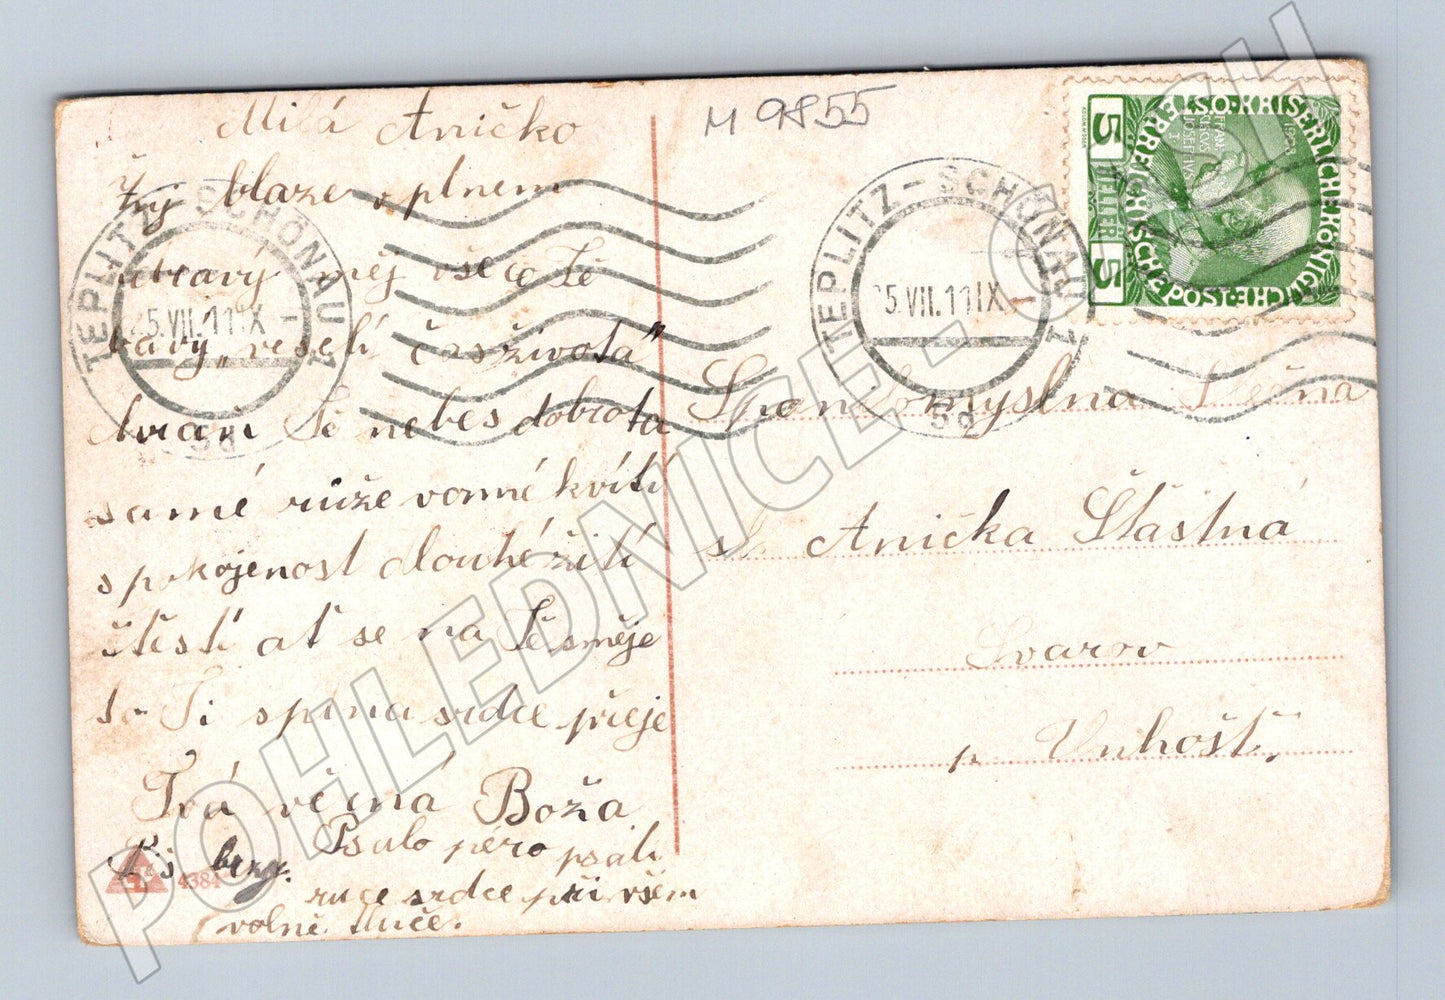 Milá Aničko
žij blaze v plnem
zdravý měj vše co Tě
baví „veselí čas života"
chraň Tě nebes dobrota
samé růže vonné kvítí
spokojenost dlouhé žití
štěstí ať se na Tě směje
to Ti splna srdce přeje
Tvá věrná Boža
Piš brzy.
Psalo péro psali
ruce srdce při všem
volně tluče.
4384
M 9855
TEPLITZ-SCHÖNAU 1
25.VII.11 IX
TEPLITZ-SCHÖNAU 1
25.VII.11 IX
KAIS·KÖNIGLICHE ÖSTERREICHISCHE POST
FRANZ JOSEPH I
5 HELLER 5
Ctnostna Slečna
sl. Anička Šťastná
Svarov
p. Unhošť,
POHLEDNICE-CECH